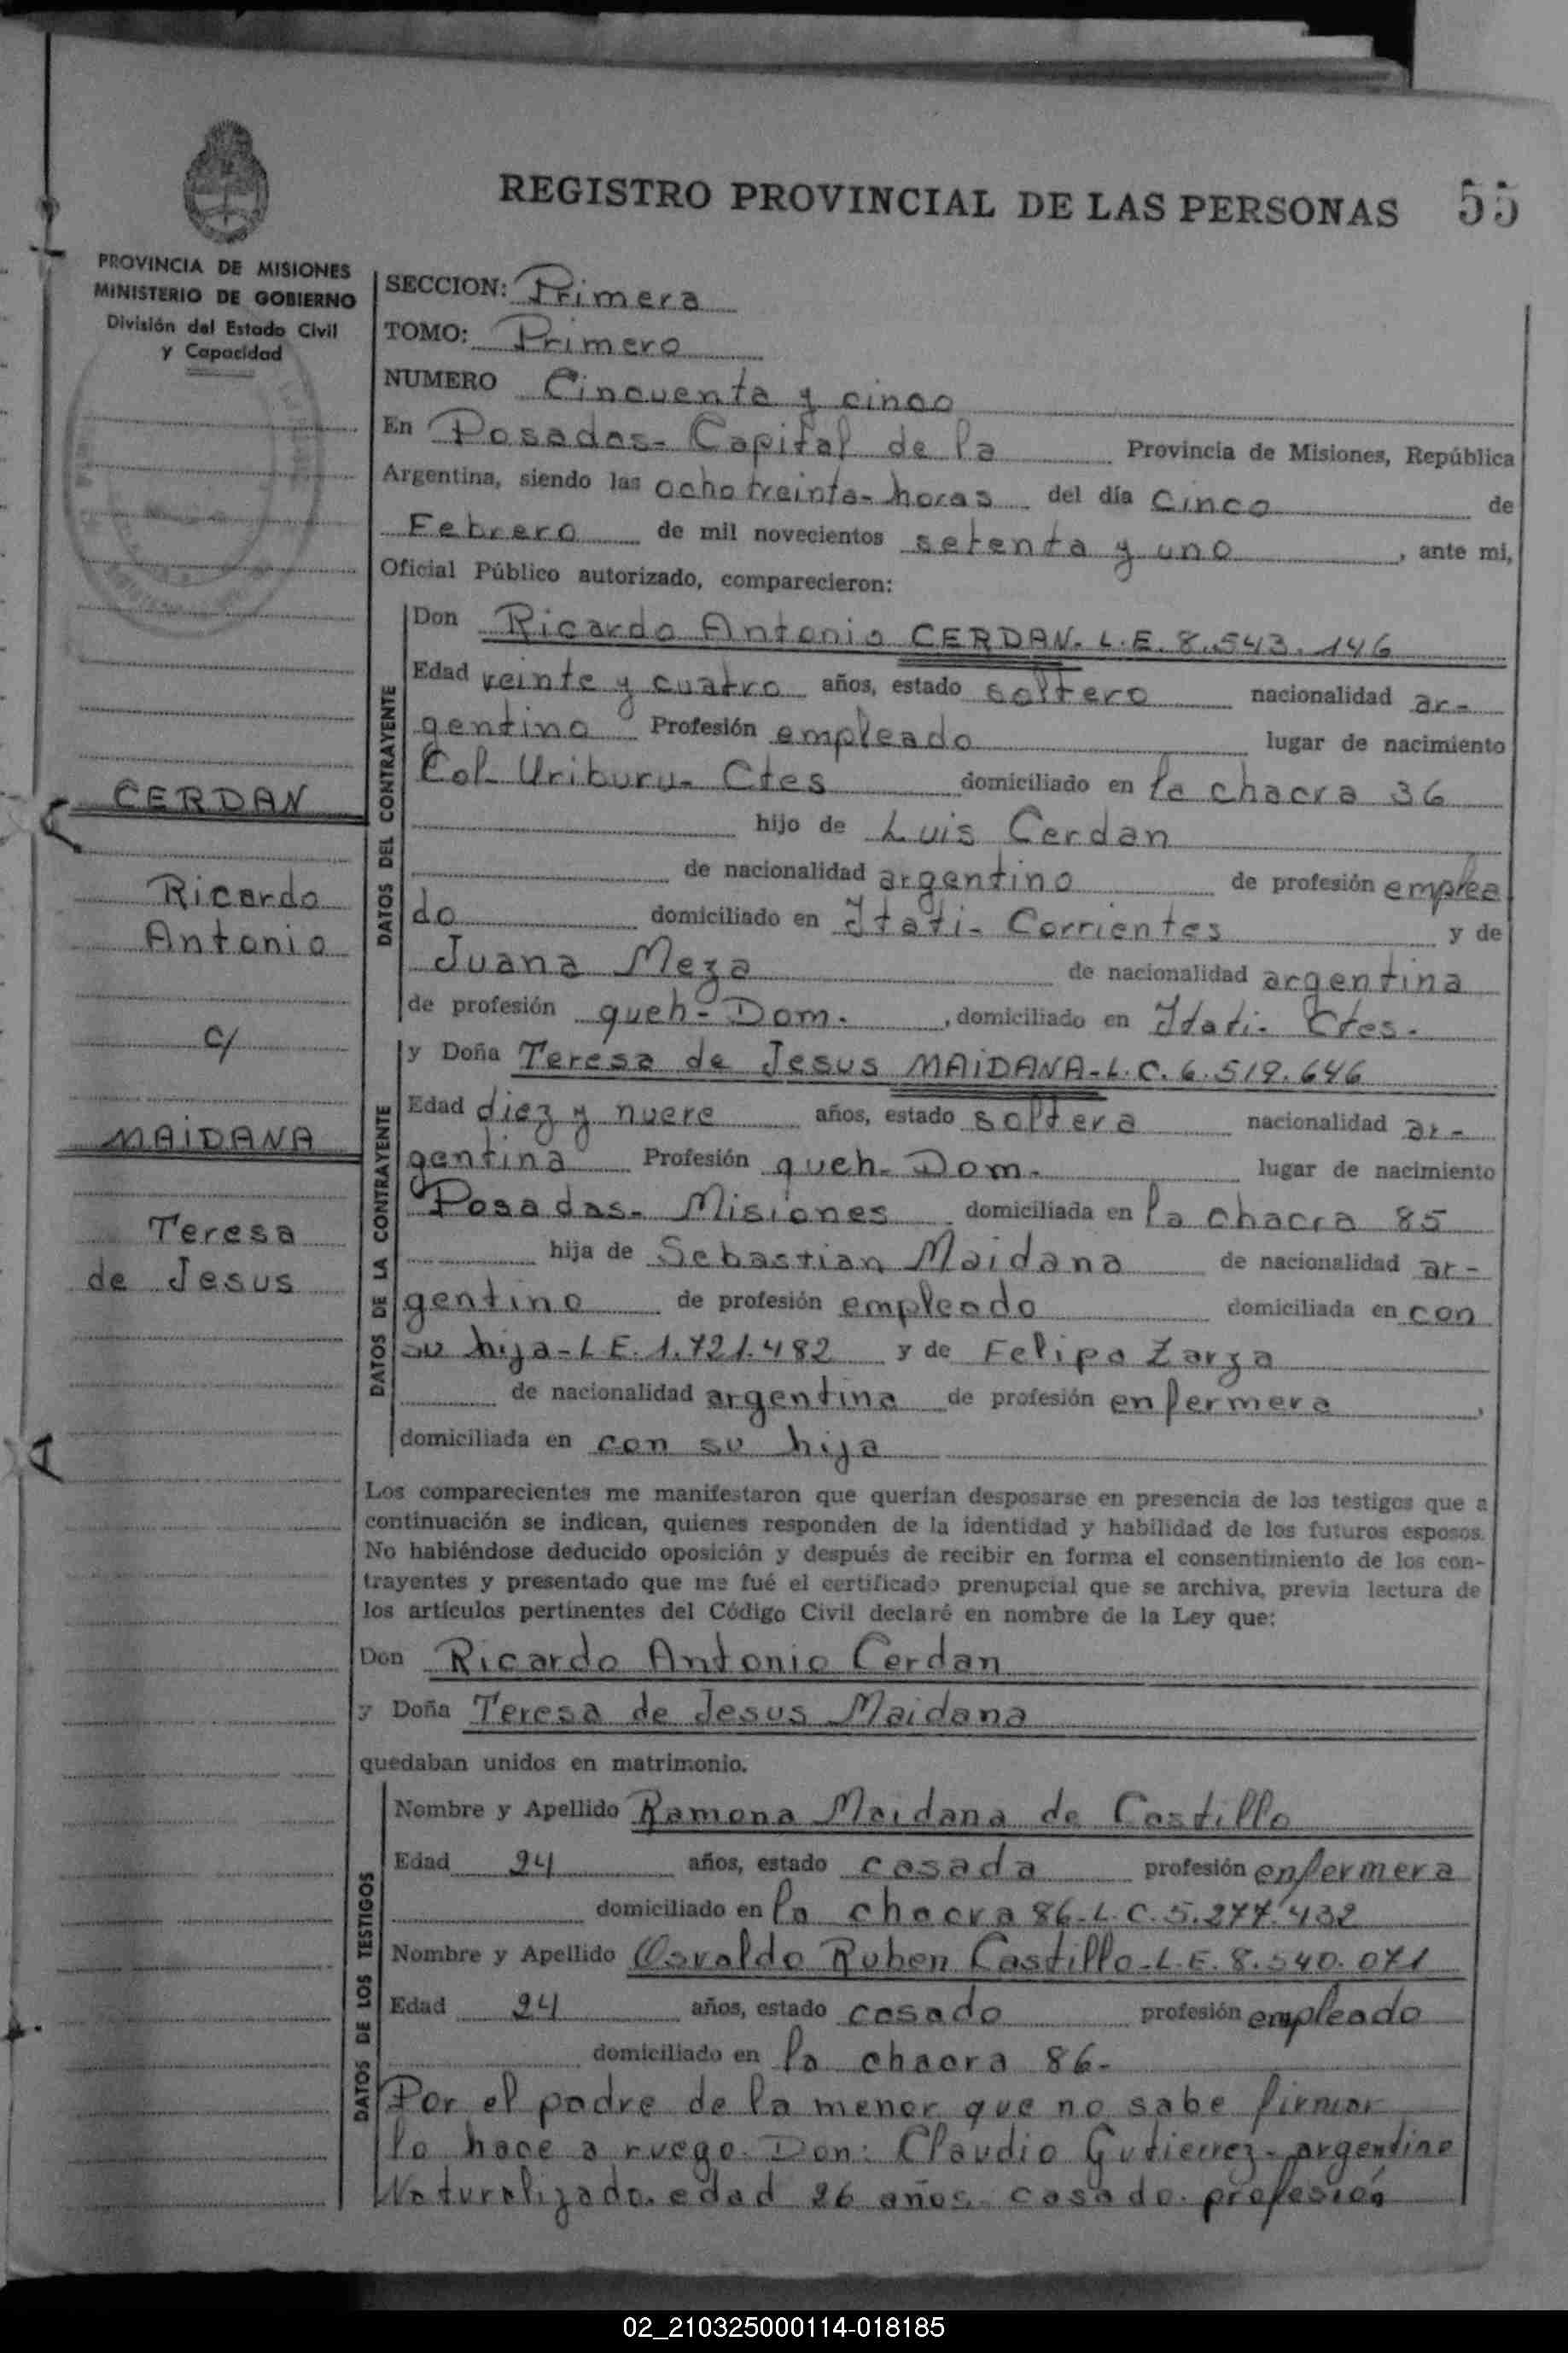 REGISTRO PROVINCIAL DE LAS PERSONAS 55
PROVINCIA DE MISIONES
MINISTERIO DE GOBIERNO
División del Estado Civil
y Capacidad
CERDAN
Ricardo
Antonio
c/
MAIDANA
Teresa
de Jesus
SECCION: Primera
TOMO: Primero
NUMERO Cincuenta y cinco
En Posadas- Capital de la Provincia de Misiones, República
Argentina, siendo las ocho treinta- horas del día cinco de
Febrero de mil novecientos setenta y uno, ante mi,
Oficial Público autorizado, comparecieron:
DATOS DEL CONTRAYENTE
Don Ricardo Antonio CERDAN- L.E. 8.543.146
Edad veinte y cuatro años, estado soltero nacionalidad ar-
gentino Profesión empleado lugar de nacimiento
Col- Uriburu- Ctes domiciliado en la chacra 36
hijo de Luis Cerdan
de nacionalidad argentino de profesión emplea
do domiciliado en Itati- Corrientes y de
Juana Meza de nacionalidad argentina
de profesión queh- Dom. , domiciliado en Itati- Ctes-
DATOS DE LA CONTRAYENTE
y Doña Teresa de Jesus MAIDANA- L.C. 6.519.646
Edad diez y nueve años, estado soltera nacionalidad ar-
gentina Profesión queh- Dom- lugar de nacimiento
Posadas- Misiones domiciliada en la chacra 85
hija de Sebastian Maidana de nacionalidad ar-
gentino de profesión empleado domiciliada en con
su hija- L.E. 1.721.482 y de Felipa Zarza
de nacionalidad argentina de profesión enfermera,
domiciliada en con su hija
Los comparecientes me manifestaron que querían desposarse en presencia de los testigos que a
continuación se indican, quienes responden de la identidad y habilidad de los futuros esposos.
No habiéndose deducido oposición y después de recibir en forma el consentimiento de los con-
trayentes y presentado que me fué el certificado prenupcial que se archiva, previa lectura de
los artículos pertinentes del Código Civil declaré en nombre de la Ley que:
Don Ricardo Antonio Cerdan
y Doña Teresa de Jesus Maidana
quedaban unidos en matrimonio.
DATOS DE LOS TESTIGOS
Nombre y Apellido Ramona Maidana de Castillo
Edad 24 años, estado casada profesión enfermera
domiciliado en la chacra 86- L.C. 5.277.432
Nombre y Apellido Osvaldo Ruben Castillo- L.E. 8.540.071
Edad 24 años, estado casado profesión empleado
domiciliado en la chacra 86-
Por el padre de la menor que no sabe firmar
lo hace a ruego Don: Claudio Gutierrez- argentino
Naturalizado. edad 26 años- casado. profesión
02_210325000114-018185